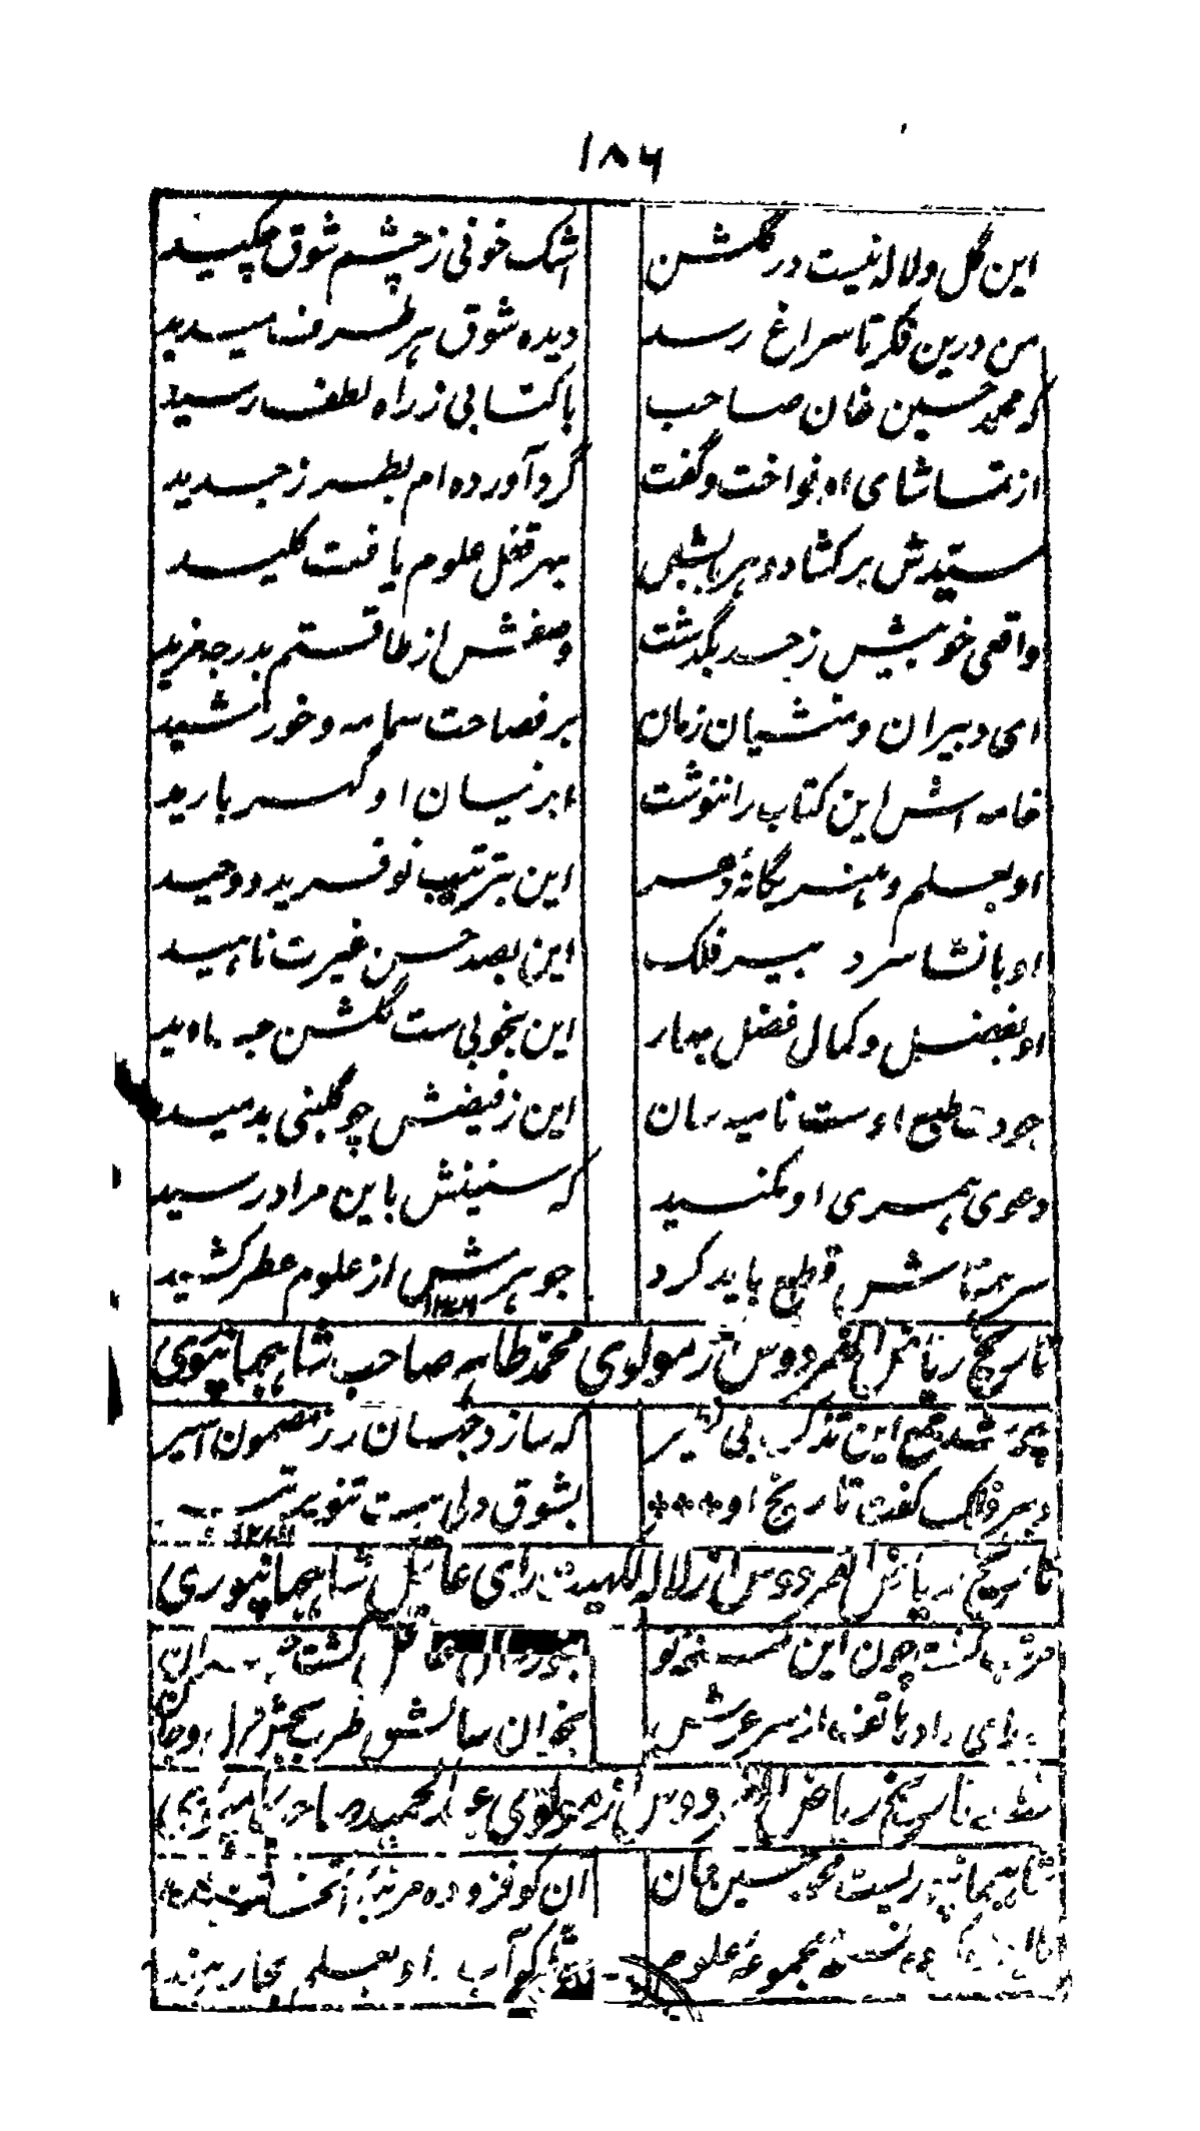 ۱۸۶
این گل و لاله نیست در گلشن اشک خونی ز چشم شوق چکیسد
من درین فکر تا سراغ رسد دیده شوق هر طرف میدید
که محمد حسین خان صاحب با کتابی ز راه لطف رسید
از تماشای او نواخت و گفت گرد آورده ام بطرز جدید
ستدمش برکشاد و هر بابش بهر قفل علوم یافت کلید
واقعی خوبیش ز حد بگذشت وصفش از طاقتم بدرجه مزید
ای دبیران و منشیان زمان بر فصاحت سما مه و خورشید
خامه اش این کتاب را ننوشت ابر نیسان او گهر بارید
او بعلم و هنر یگانهٔ دهر این بترتیب نو فرید و وحید
او بانشا سرد بیر فلک این بصد حسن غیرت ناهید
او بفضل و کمال فضل بهار این بخوبی ست گلشن جاوید
جودت طبع اوست نامیه سان این ز فیضش چو گلبنی بدمید
دعوی همسری او مکنید که سنینش باین مراد رسید
سر همتاش قطع باید کرد جوهرش از علوم عطر کشید
تاریخ ریاض الفردوس از مولوی محمد طاهر صاحب شاهجهانپوری
چو شد جمع این تذکره بی نظیر که سازد جهان را ز مضمون اسیر
دبیر فلک گفت تاریخ او بشوق دلی هست تنویر
تاریخ ریاض الفردوس از لاله رای عاقل شاهجهانپوری
گشت چون این نسخه نو عاقل گشت
رای داد هاتف از سر عرش بخوان سالش طرب بخش
تاریخ ریاض الفردوس از مولوی عبد الحمید صاحب
شاهجهانپوریست محمد حسین خان ان کو فزوده مرتبهٔ
مجموعهٔ علوم بعلم بحار